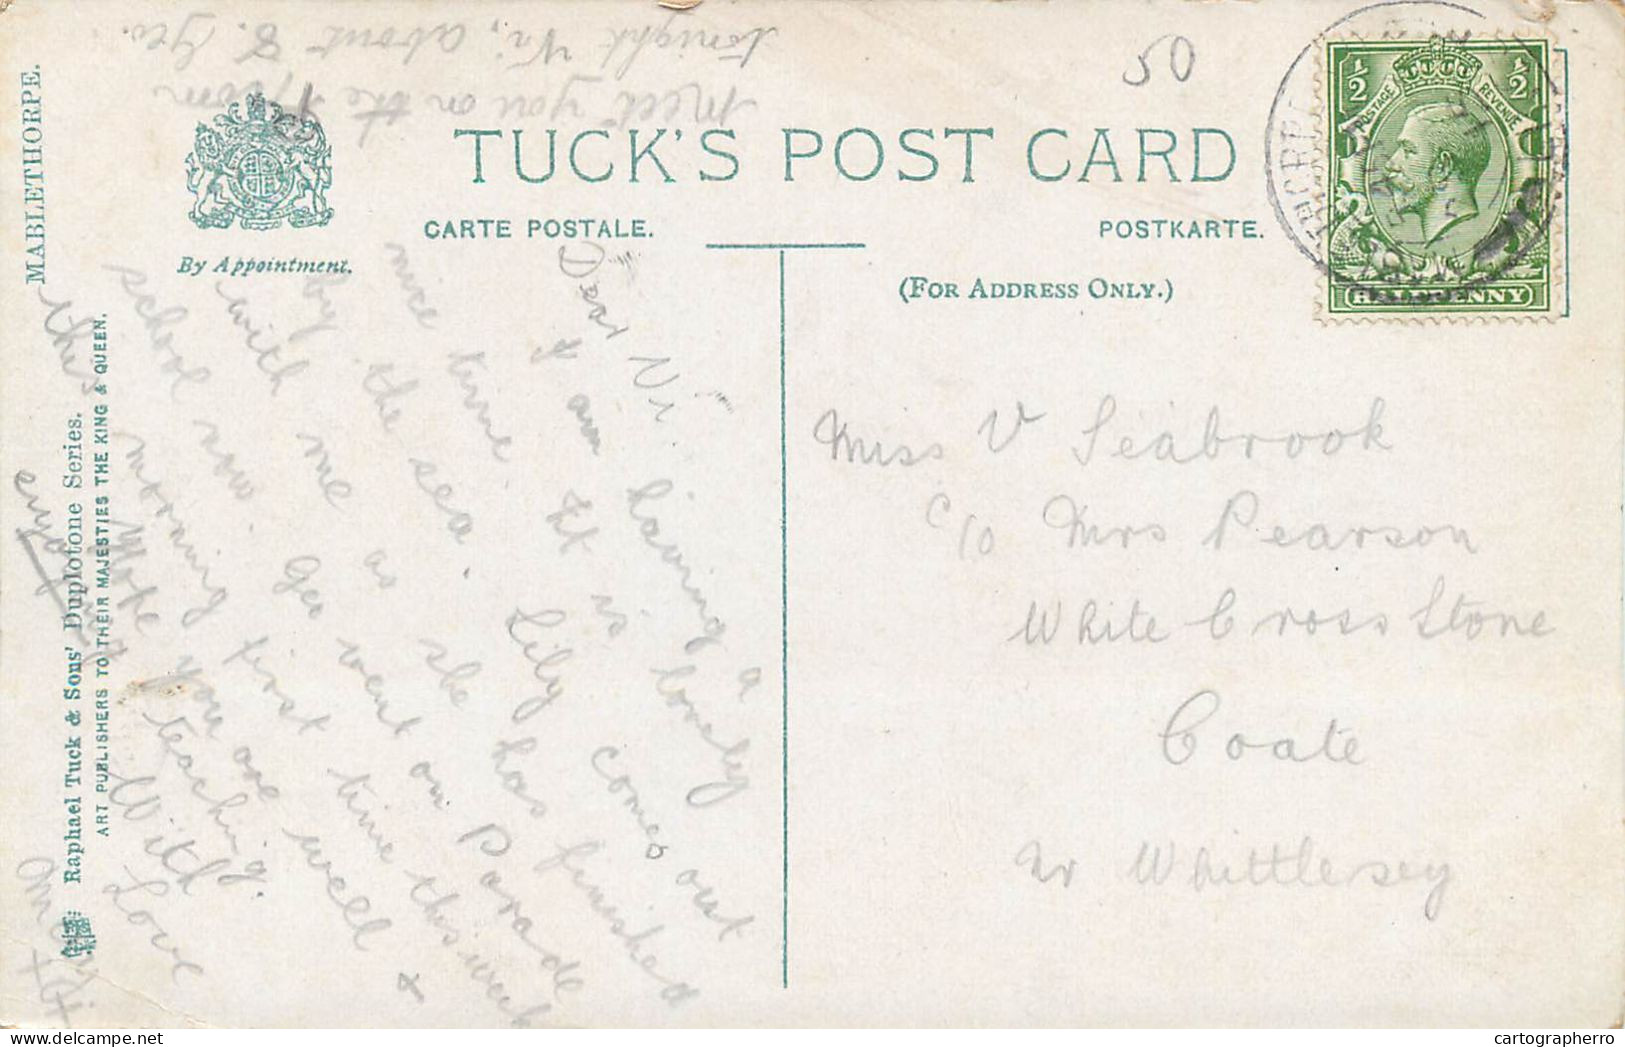 MABLETHORPE.
Raphael Tuck & Sons' Duplotone Series.
ART PUBLISHERS TO THEIR MAJESTIES THE KING & QUEEN.
By Appointment.
TUCK'S POST CARD
CARTE POSTALE.
POSTKARTE.
(FOR ADDRESS ONLY.)
50
POSTAGE
REVENUE
½
½
HALFPENNY
Meet you on the Prom
tonight Vi, about 8. Geo.
Dear Vi.
I am having a
nice time It is lovely
by the sea. Lily comes out
with me as she has finished
school now. Geo went on Parade
this morning first time this week
Hope you are well &
enjoying teaching.
With
Love
Miss V Seabrook
c/o Mrs Pearson
White Cross Stone
Coate
Nr Whittlesey
cartographerro